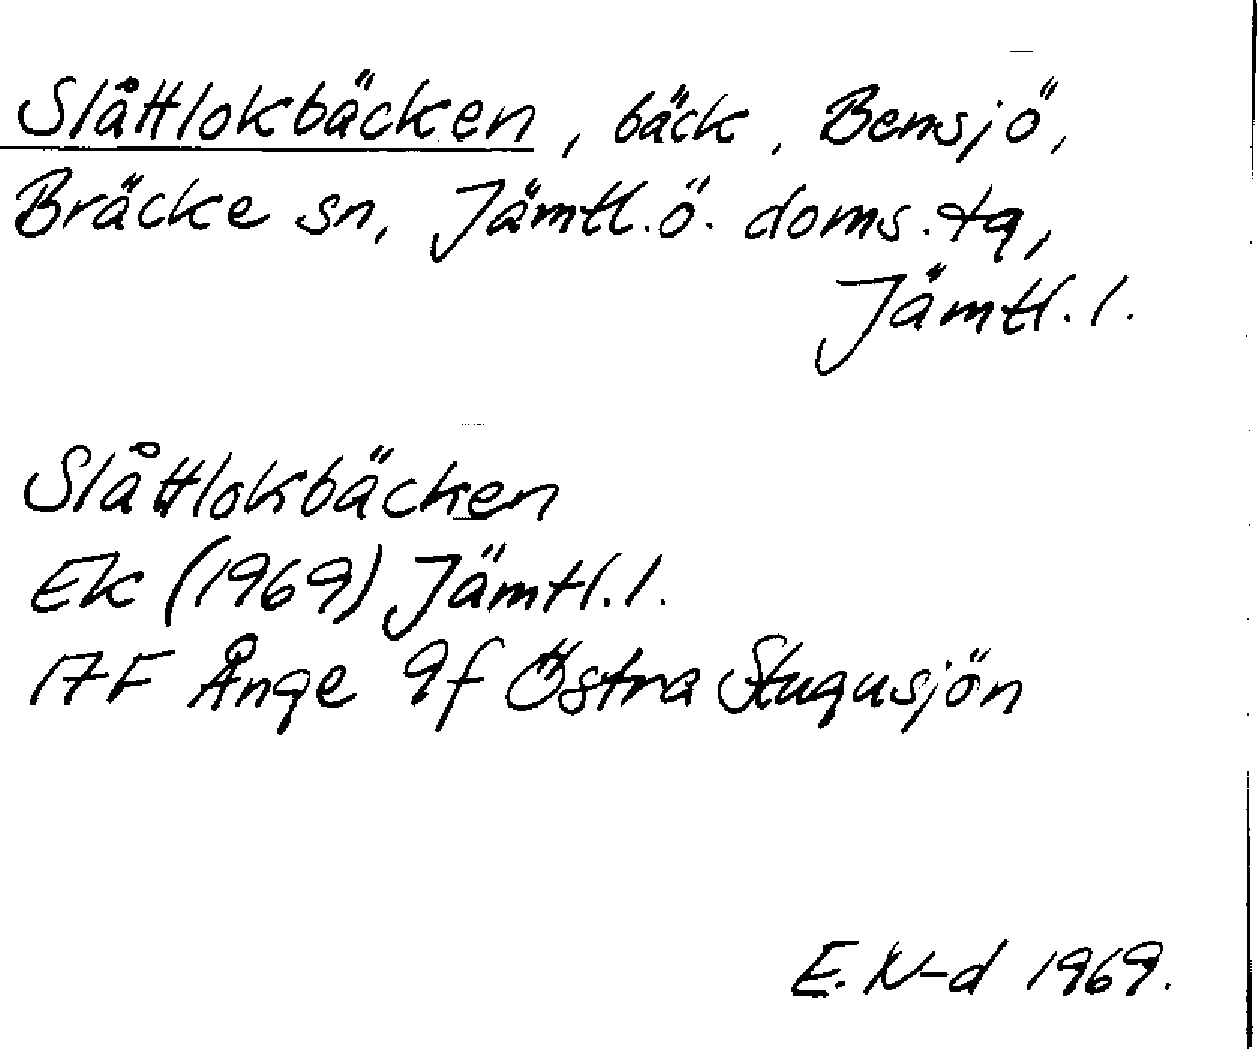 Slåttlokbäcken, bäck, Bensjö,
Bräcke sn, Jämtl.ö. doms.tg,
Jämtl.l.
Slåttlokbäcken
Ek (1969) Jämtl.l.
17F Ånge 9f Östra Stugusjön
E.N-d 1969.